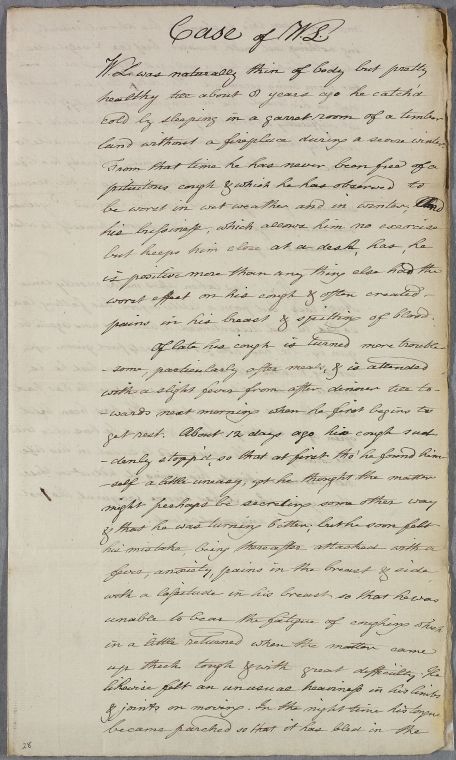 Case of W L.
W L. was naturally thin of body but pretty
healthy till about 8 years ago he catch'd
cold by sleeping in a garret room of a timber
land without a fireplace during a severe winter.
From that time he has never been free of a
pituitous cough & which he has observed to
be worst in wet weather and in winter, And
his business, which allows him no exercise
but keeps him close at a desk, has, he
is positive more than any thing else had the
worst effect on his cough & often created
pains in his breast & spitting of blood.
Of late his cough is turned more trouble
-some, particularly after meat, & is attended
with a slight fever from after dinner till to-
-wards next morning when he first begins to
get rest. About 12 days ago his cough sud
-denly stopp'd, so that at first tho' he found him
-self a little uneasy, yet he thought the matter
might perhaps be secreting some other way
& that he was turning better, but he soon felt
his mistake, being thereafter attacked with a
fever, anxiety, pains in the breast & side
with a lassitude in his breast so that he was
unable to bear the fatigue of coughing which
in a little returned when the matter came
up thick tough & with great difficulty. He
likewise felt an unusual heaviness in his limbs
& joints on moving. In the night time his tongue
became parched so that it has bled in the
28